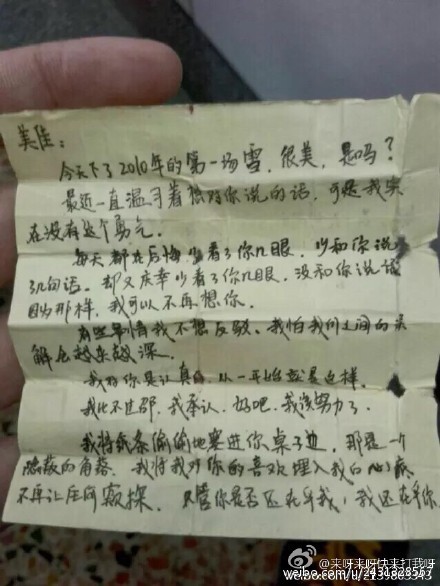 美佳：
今天下了2010年的第一场雪，很美，是吗？
最近一直温习着想对你说的话，可是我实
在没有这个勇气。
每天都在后悔少看了你几眼，少和你说
了几句话。却又庆幸少看了你几眼，没和你说话
因为那样，我可以不再想你。
有些事情我不想反驳。我怕我们之间的误
解会越来越深。
我对你是认真的，从一开始就是这样。
我比不过邵，我承认，好吧，我该努力了。
我将纸条偷偷地塞进你桌子边，那是一个
隐蔽的角落。我将我对你的喜欢埋入我的心底
不再让任何窥探。不管你是否还在乎我，我还在乎你
@来呀来呀快来打我呀
weibo.com/u/2431828357